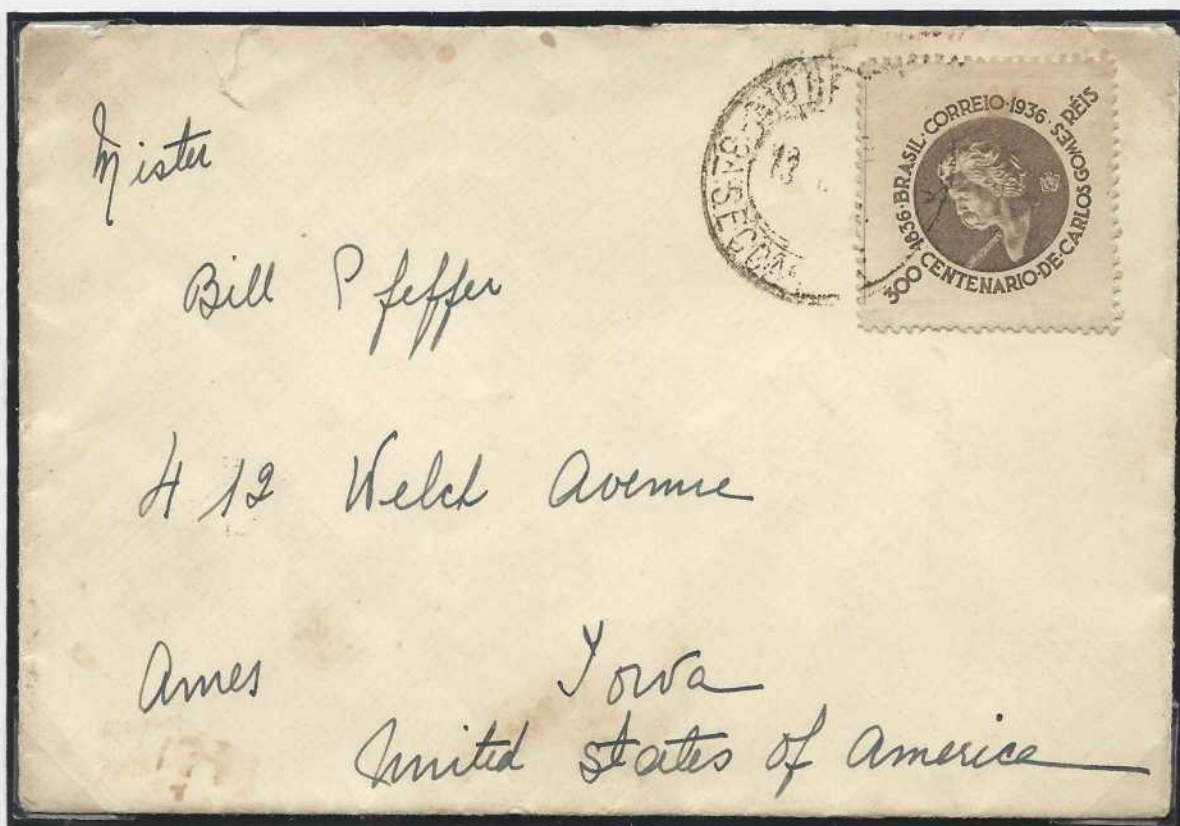 Mister
Bill Pfeffer
412 Welch Avenue
Ames Iowa
United States of America
1836 · BRASIL · CORREIO · 1936 ·
300 CENTENARIO · DE · CARLOS GOMES RÉIS
13